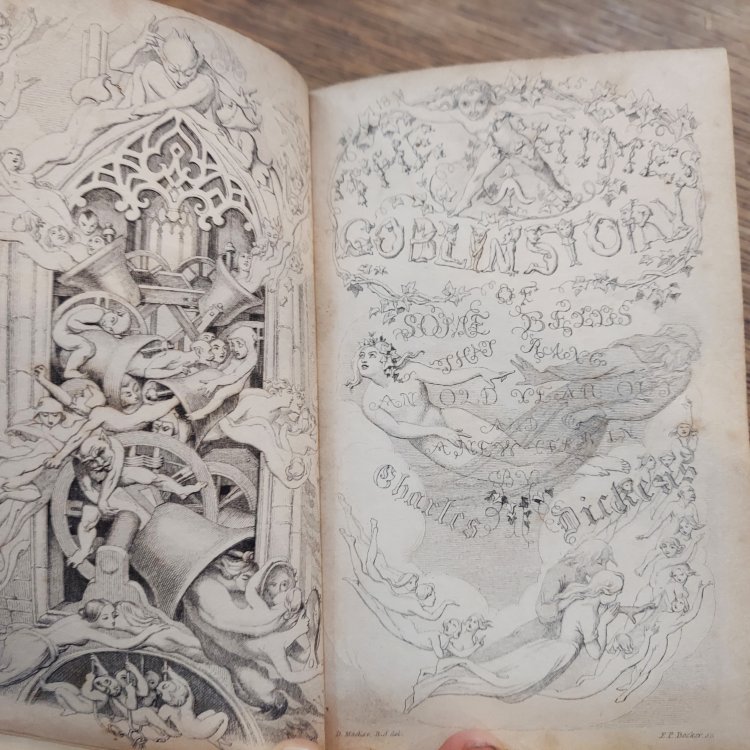 THE CHIMES
A
GOBLIN STORY
OF
SOME BELLS
THAT RANG
AN OLD YEAR OUT
AND A
A NEW YEAR IN
BY
Charles Dickens
D. Maclise, R.A. del.
F. P. Becker. sc.